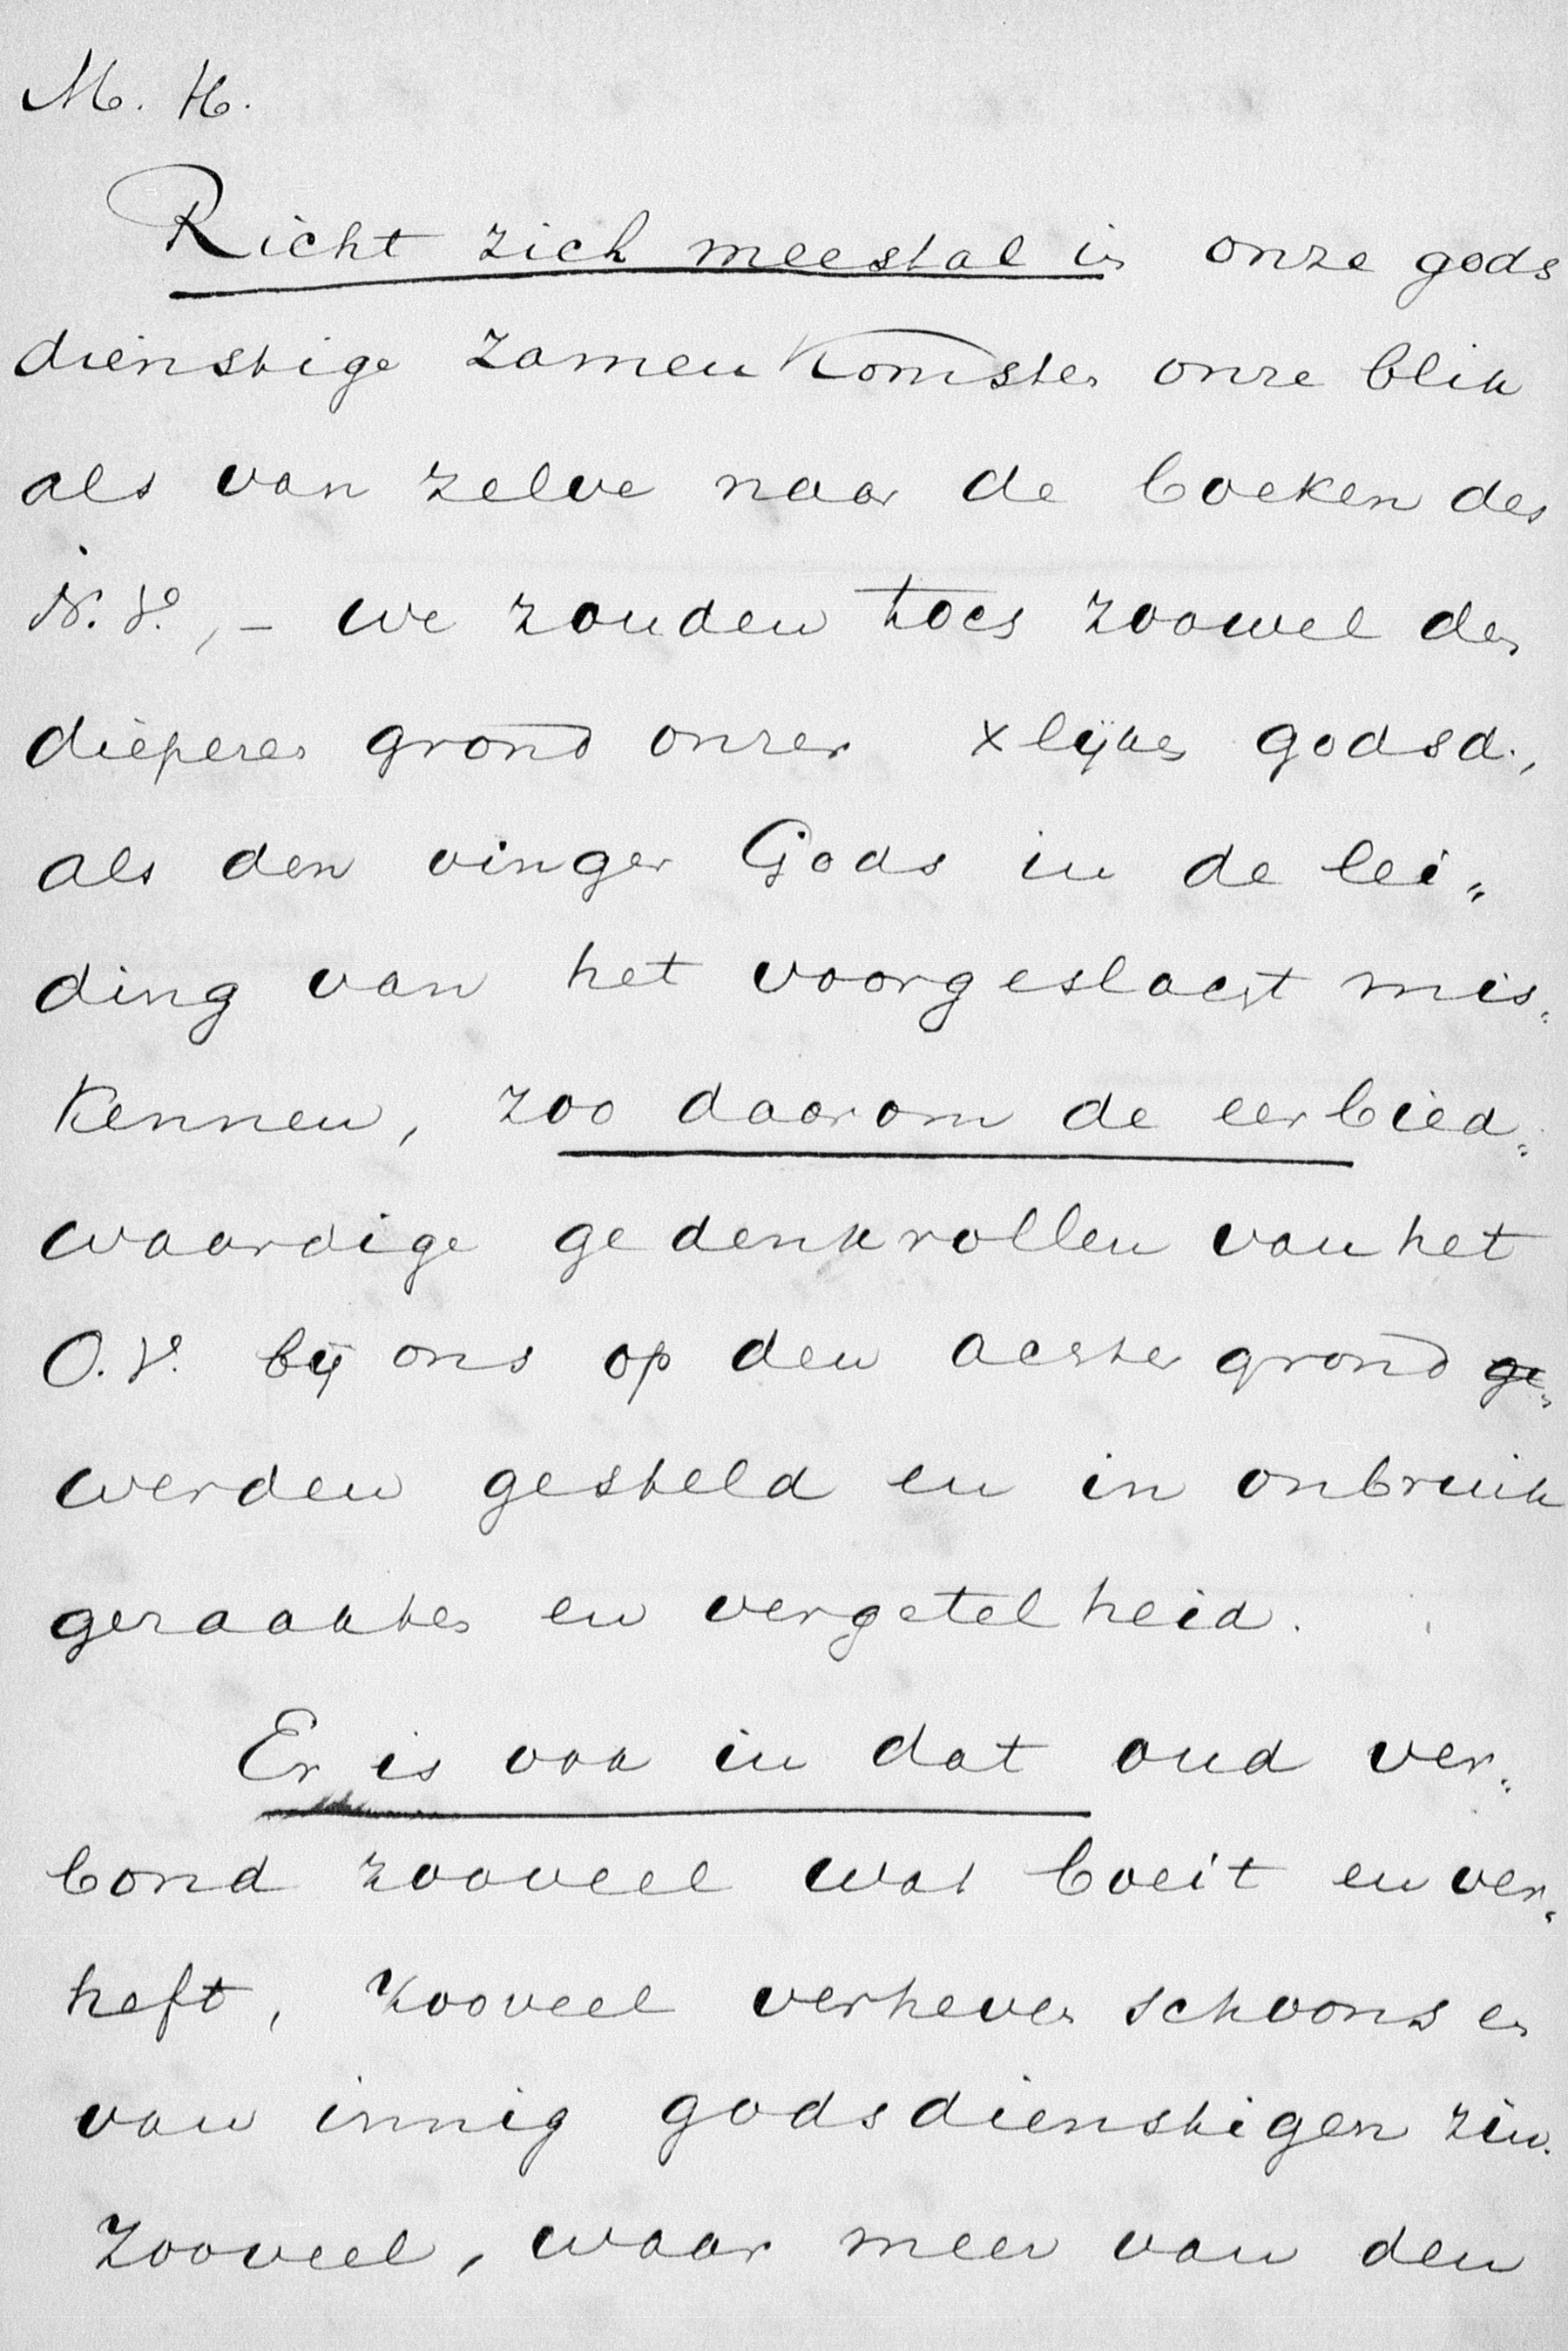 M. H.
Richt zich meestal in onze gods
dienstige zamenkomsten onze blik
als van zelve naar de boeken des
N. V., – we zouden toch zoowel den
dieperen grond onzer xlijken godsd.,
als den vinger Gods in de lei„
ding van het voorgeslacht mis„
kennen, zoo daarom de eerbied„
waardige gedenkrollen van het
O. V. bij ons op den achtergrond ge„
werden gesteld en in onbruik
geraakten en vergetelheid.
Er is ook in dat oud ver„
bond zooveel wat boeit en ver„
heft, zooveel verheven schoons en
van innig godsdienstigen zin.
Zooveel, waar meer van den